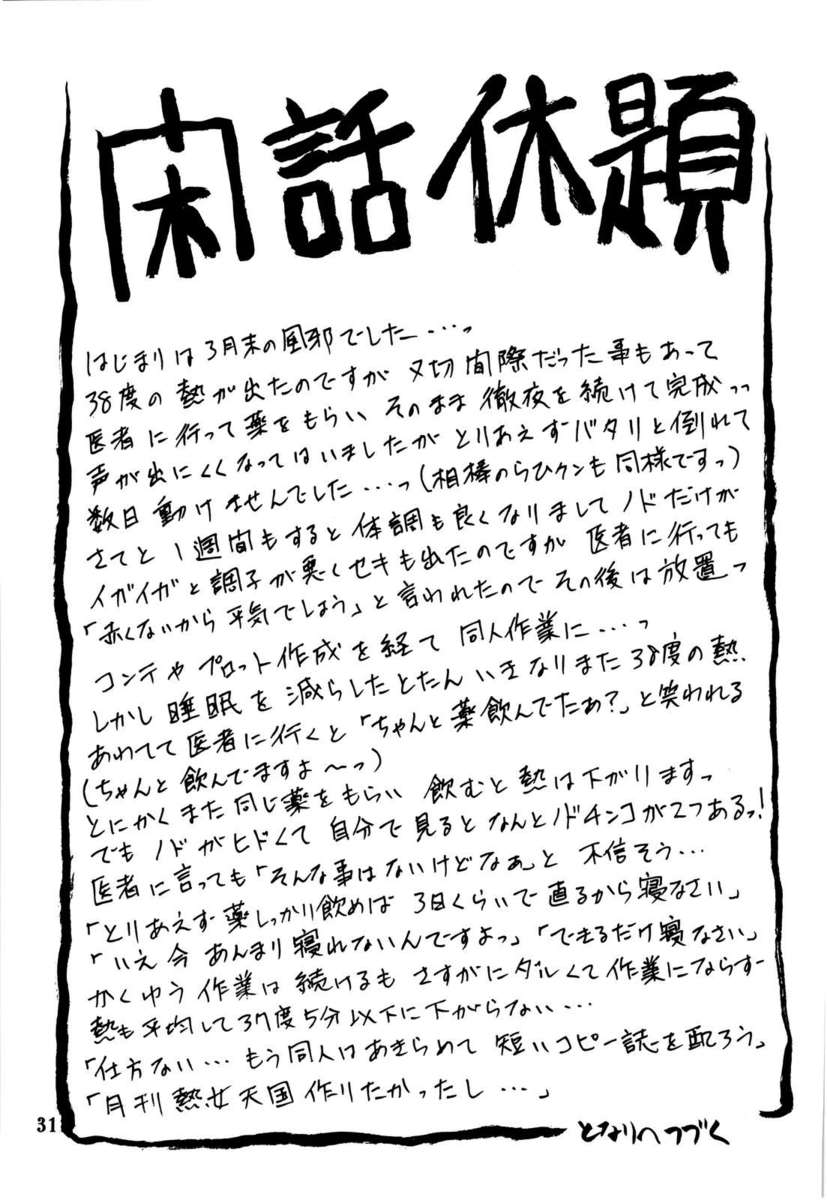 閑話休題
はじまりは3月末の風邪でした…っ
38度の熱が出たのですが〆切間際だった事もあって
医者に行って薬をもらい そのまま徹夜を続けて完成っっ
声が出にくくなってはいましたが とりあえずバタリと倒れて
数日動けませんでした…っ(相棒のらひクンも同様ですっ)
さてと 1週間もすると体調も良くなりまして ノドだけが
イガイガと調子が悪くセキも出たのですが 医者に行っても
「赤くないから平気でしょう」と言われたので その後は放置っ
コンテや プロット作成を経て 同人作業に…っ
しかし睡眠を減らしたとたん いきなりまた38度の熱
あわてて医者に行くと「ちゃんと薬飲んでたあ?」と笑われる
(ちゃんと飲んでますよ〜っ)
とにかくまた同じ薬をもらい 飲むと熱は下がりますっ
でも ノドがヒドくて 自分で見ると なんとノドチンコが2つあるっ!
医者に言っても「そんな事はないけどなぁ」と 不信そう…
「とりあえず薬しっかり飲めば 3日くらいで直るから寝なさい」
「いえ 今 あんまり寝れないんですよっ」「できるだけ寝なさい」
かくゆう作業は続けるも さすがにダルくて作業にならず
熱も平均して37度5分以下に下がらない…
「仕方ない… もう同人はあきらめて 短いコピー誌を配ろう」
「月刊熟女天国作りたかったし…」
となりへつづく
31